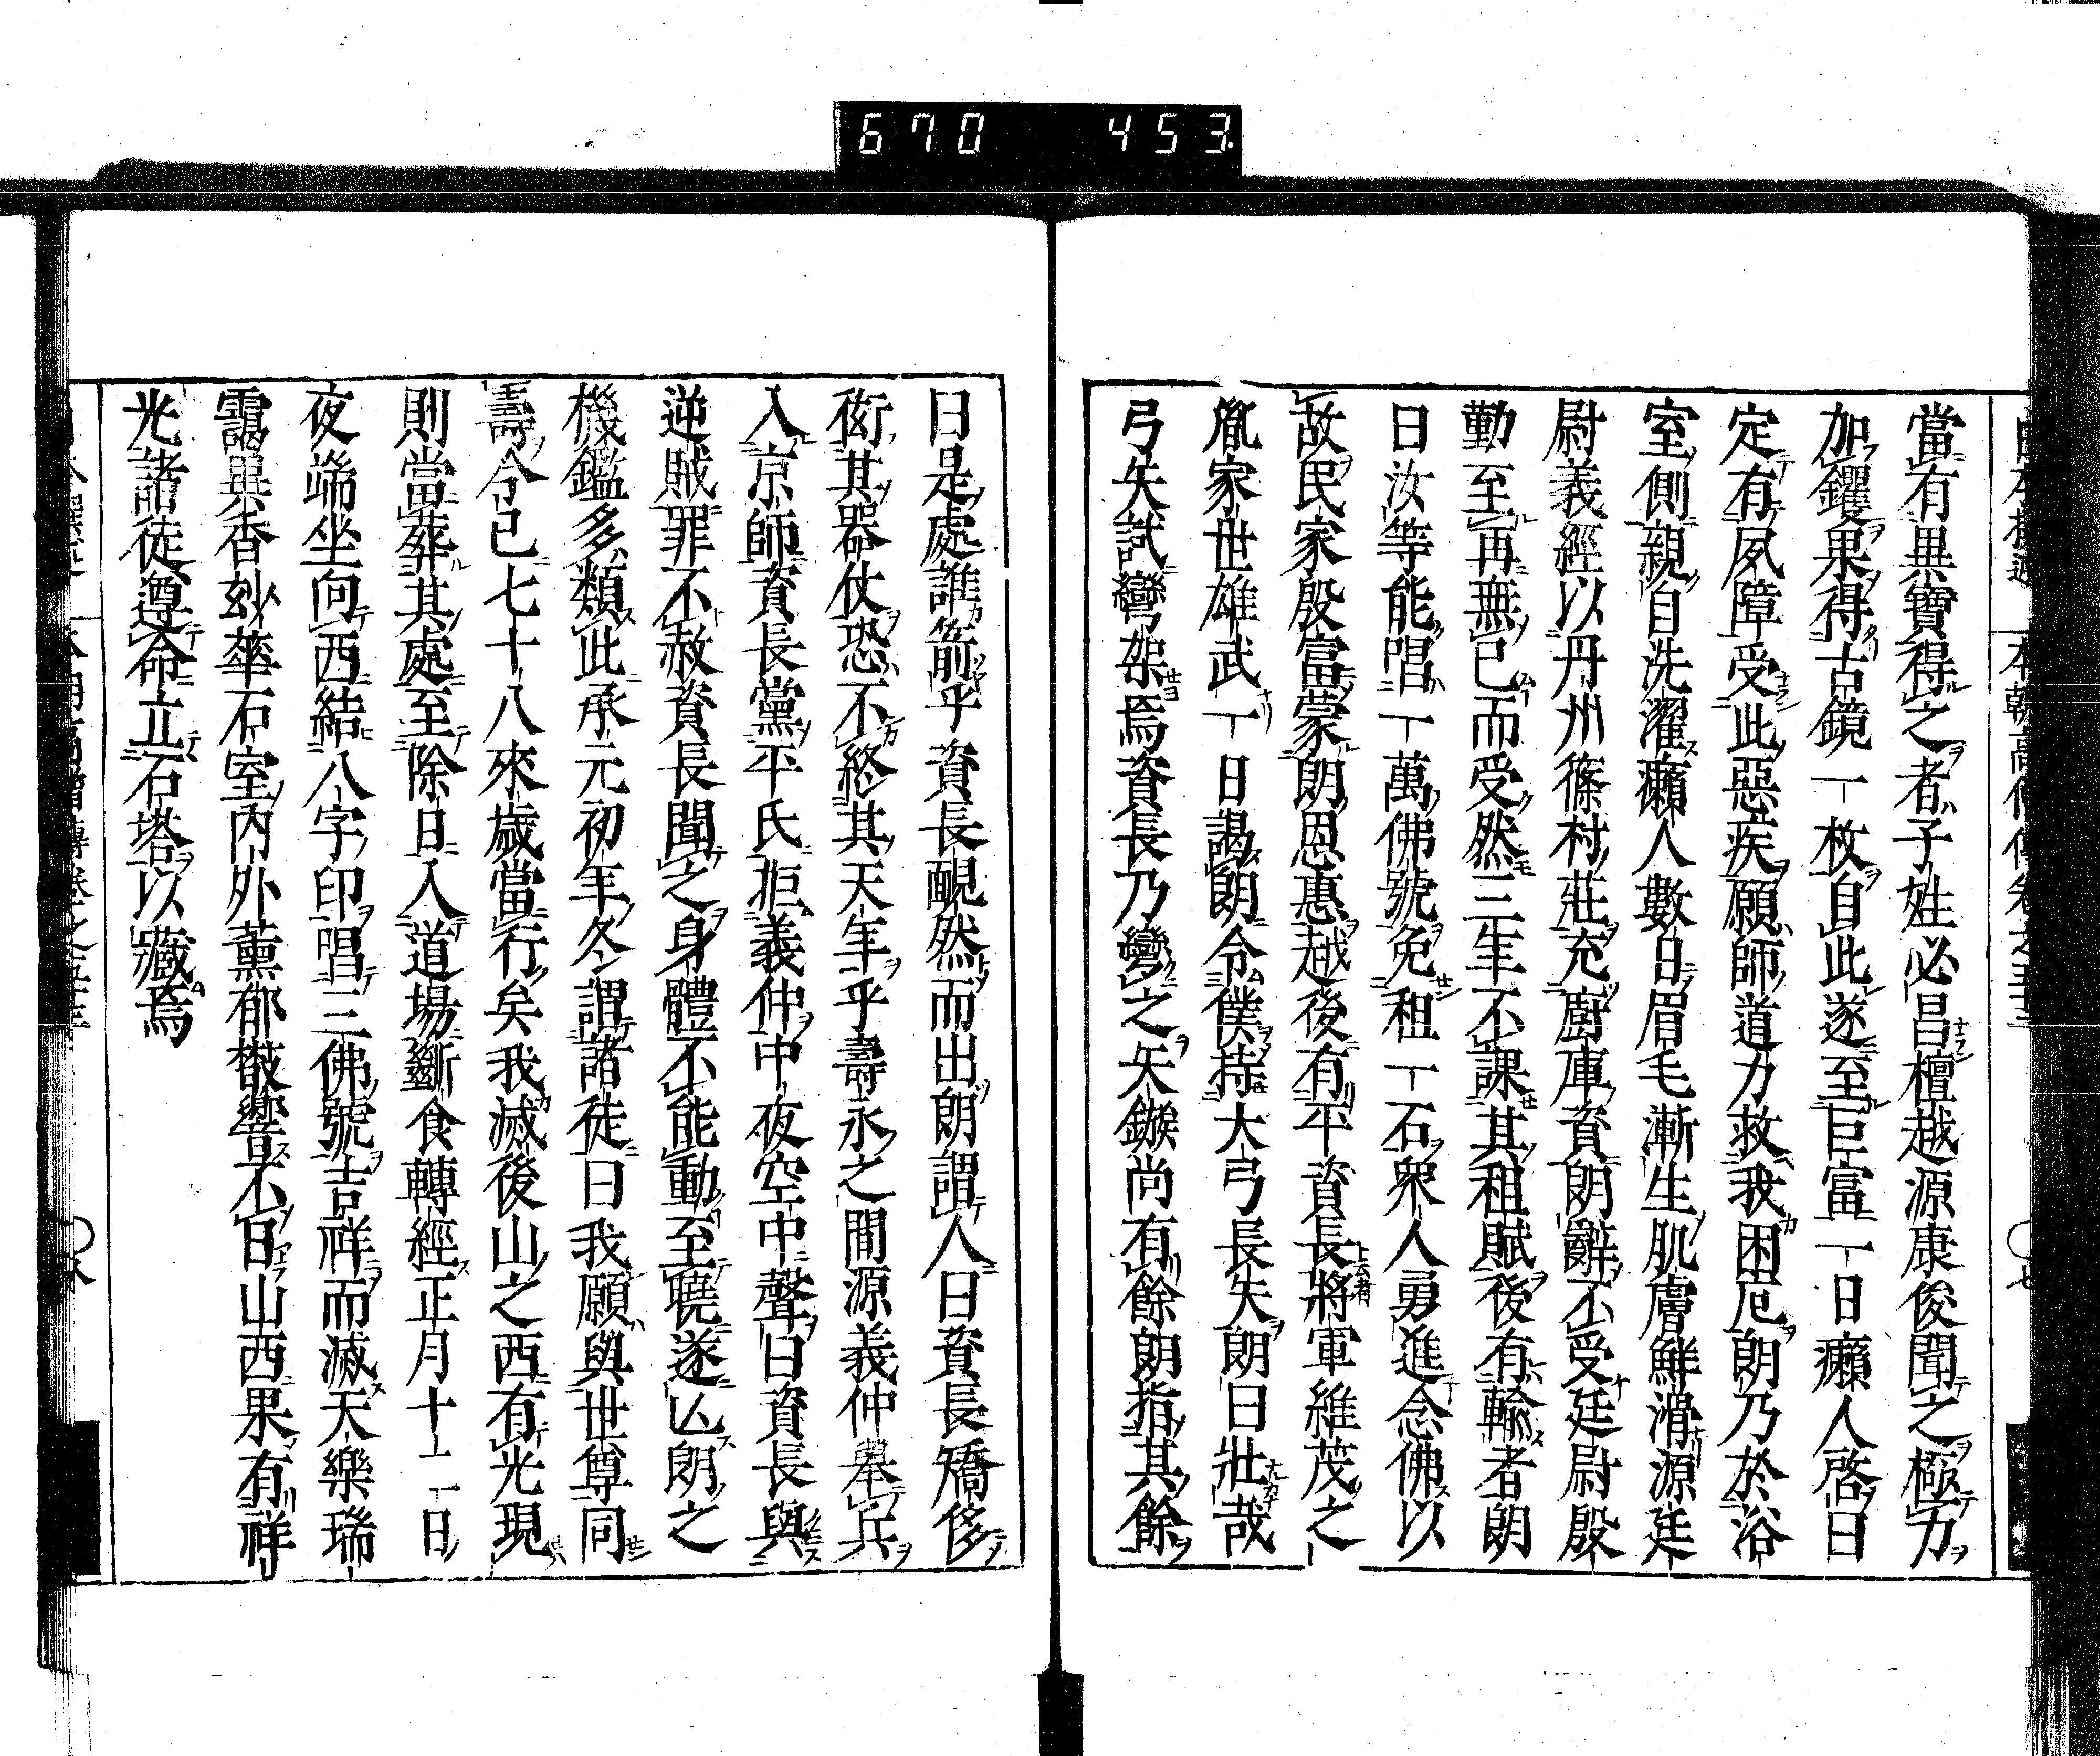 670 453
當有異寶得之者子姓必昌檀越源康俊聞之極力
加钁果得古鏡一枚自此遂至巨富一日癩人啓曰
定有夙障受此惡疾願師道力救我困厄朗乃於浴
室側親自洗濯癩人數日眉毛漸生肌膚鮮滑源廷
尉義經以丹州篠村莊充廚庫資朗辭不受廷尉殷
勤至再無已而受然三年不課其租賦後有輸者朗
曰汝等能唱一萬佛號免租一石眾人勇進念佛以
故民家殷富蒙朗恩惠越後有平資長將軍維茂之
胤家世雄武一日謁朗令僕持大弓長矢朗曰壯哉
弓矢試彎架焉資長乃彎之矢鏃尚有餘朗指其餘
曰是處誰箭乎資長靦然而出朗謂人曰資長矯侈
衒其器仗恐不終其天年乎壽永之間源義仲舉兵
入京師資長黨平氏拒義仲中夜空中聲曰資長與
逆賊罪不赦資長聞之身體不能動至曉遂亾朗之
機鑑多類此承元初年冬謂諸徒曰我願與世尊同
壽今已七十八來歲當行矣我滅後山之西有光現
則當葬其處至除日入道場斷食轉經正月十二日
夜端坐向西結八字印唱三佛號吉祥而滅天樂瑞
靄異香玅華石室內外薰郁馥響不日山西果有祥
光諸徒遵命立石塔以藏焉